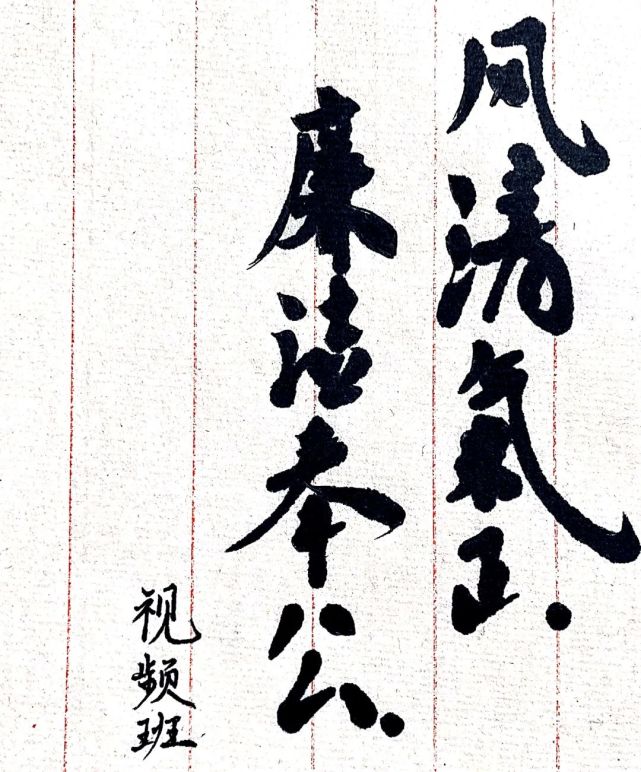 风清氣正.
廉洁奉公.
视频班